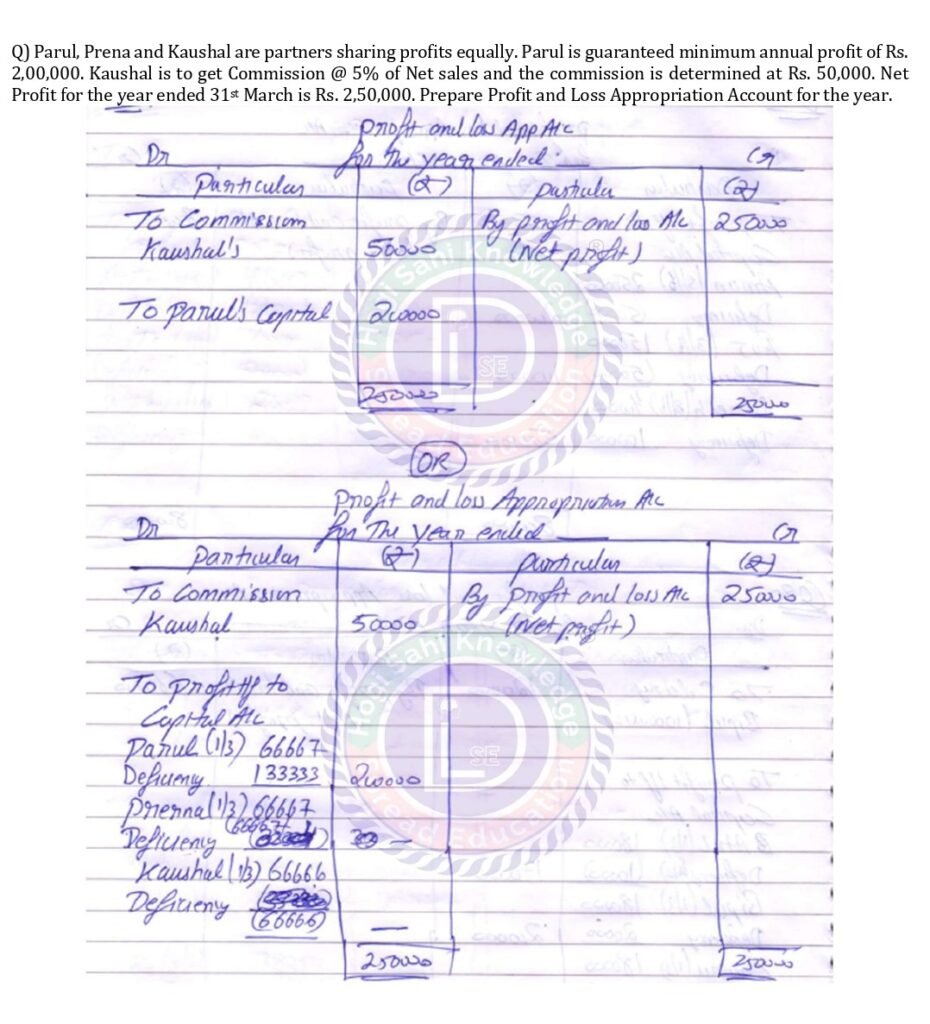 Q) Parul, Prena and Kaushal are partners sharing profits equally. Parul is guaranteed minimum annual profit of Rs.
2,00,000. Kaushal is to get Commission @ 5% of Net sales and the commission is determined at Rs. 50,000. Net
Profit for the year ended 31st March is Rs. 2,50,000. Prepare Profit and Loss Appropriation Account for the year.
Profit and loss App A/c
Dr for the year ended Cr
Particular (₹) particular (₹)
To Commission By profit and loss A/c 250000
Kaushal's 50000 (Net profit)
To Parul's Capital 200000
250000 250000
OR
Profit and loss Appropriation A/c
Dr for The Year ended Cr
particular (₹) particular (₹)
To Commission By profit and loss A/c 250000
Kaushal 50000 (Net profit)
To profit to
Capital A/c
Parul (1/3) 66667
Deficieny 133333 200000
Prernal (1/3) 66667
Deficieny (66667) —
Kaushal (1/3) 66666
Deficieny (66666) —
250000 250000
Hogi Sahi Knowledge
Spread Education
ID
SE
Hogi Sahi Knowledge
Spread Education
ID
SE